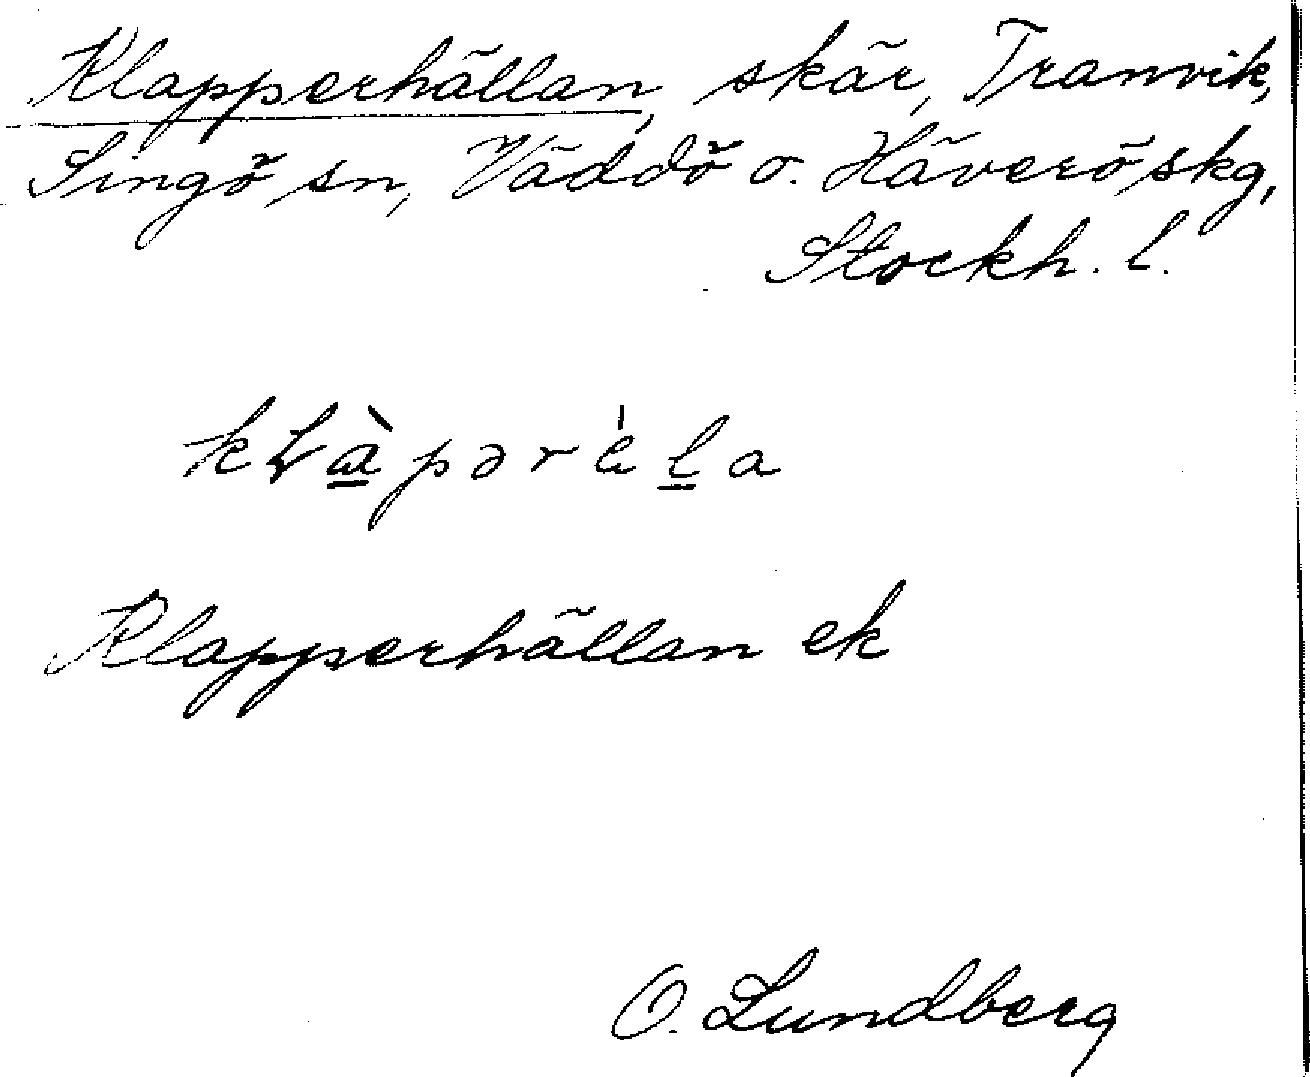 Klapperhällan, skär, Tranvik,
Singö sn, Väddö o. Häverö skg,
Stockh. l.
kLàpərèla
Klapperhällan ek
O. Lundberg